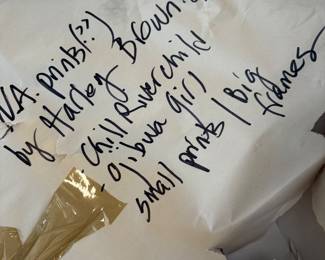 N.A. prints(??)
by Harley Brown
Chill Riverchild
- Ojibwa girl
small prints / Big
frames